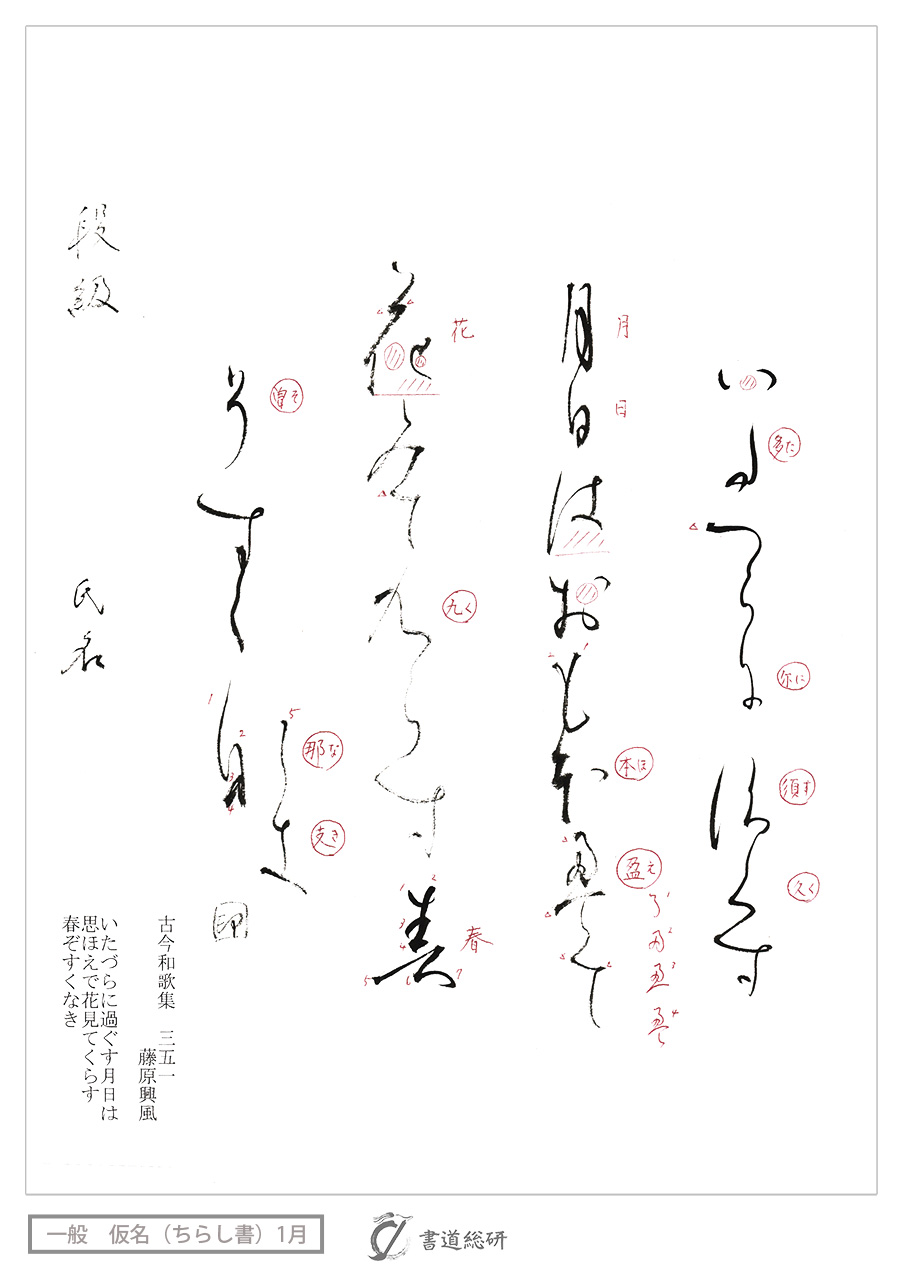 い多つら尓須久す
多た
尓に
須す
久く
月日はおも本盈て
月
日
本ほ
盈え
花みて九らす春
花
九く
春
曽すく那支
曽そ
那な
支き
印
段級
氏名
古今和歌集 三五一
藤原興風
いたづらに過ぐす月日は
思ほえで花見てくらす
春ぞすくなき
一般 仮名（ちらし書）1月
書道総研